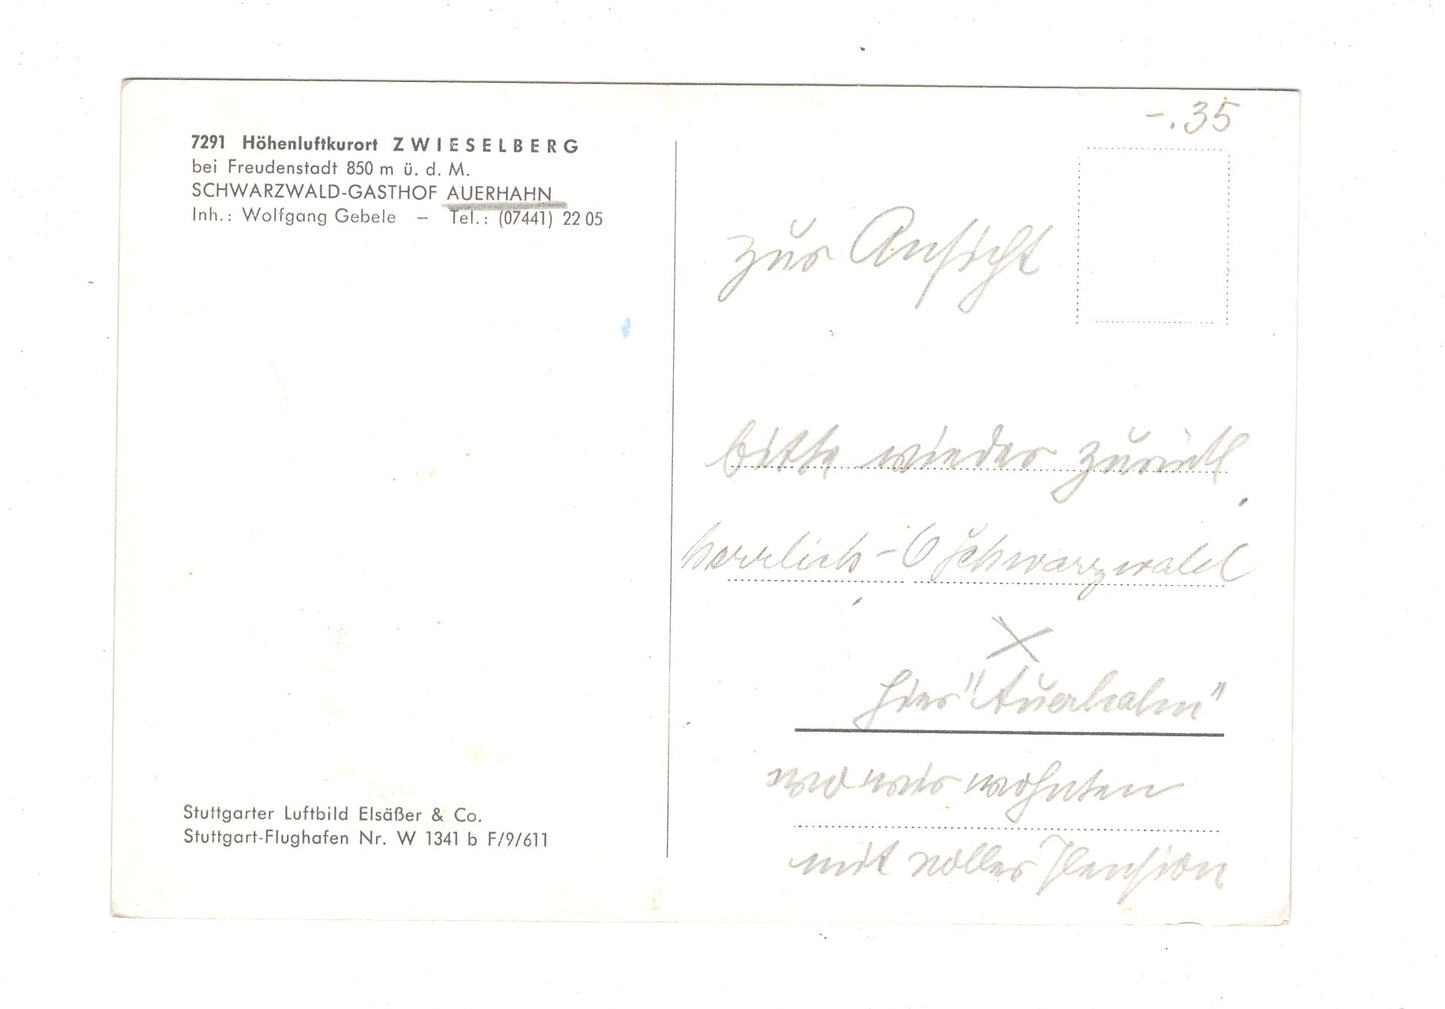 7291 Höhenluftkurort ZWIESELBERG
bei Freudenstadt 850 m ü. d. M.
SCHWARZWALD-GASTHOF AUERHAHN
Inh.: Wolfgang Gebele – Tel.: (07441) 22 05
-.35
zur Ansicht
bitte wieder zurück
herrlich - Schwarzwald
hier "Auerhahn"
wo wir wohnten
mit voller Pension
Stuttgarter Luftbild Elsäßer & Co.
Stuttgart-Flughafen Nr. W 1341 b F/9/611